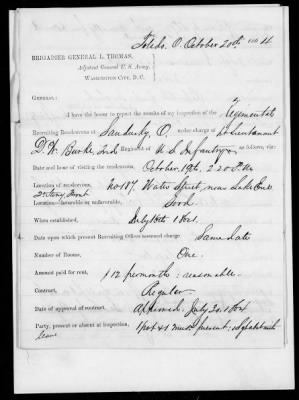 Toledo, O. October 20th 1864
BRIGADIER GENERAL L. THOMAS,
Adjutant General U. S. Army,
WASHINGTON CITY, D. C.
GENERAL:
I have the honor to report the results of my inspection of the Regimental
Recruiting Rendezvous at Sandusky, O. under charge of 1st Lieutenant
D. W. Burke, 2nd Regiment of U. S. Infantry, as follows, viz:
Date and hour of visiting the rendezvous, October, 19th, 2 20 P. M.
Location of rendezvous, No 187. Water Street, near Lake Erie
2d Story, Front
Location—favorable or unfavorable, Good
When established, July 18th 1864.
Date upon which present Recruiting Officer assumed charge Same date
Number of Rooms, One.
Amount paid for rent, $12 per month: reasonable.
Contract, Regular
Date of approval of contract. Approved. July 20. 1864
Party, present or absent at inspection, present.
leave